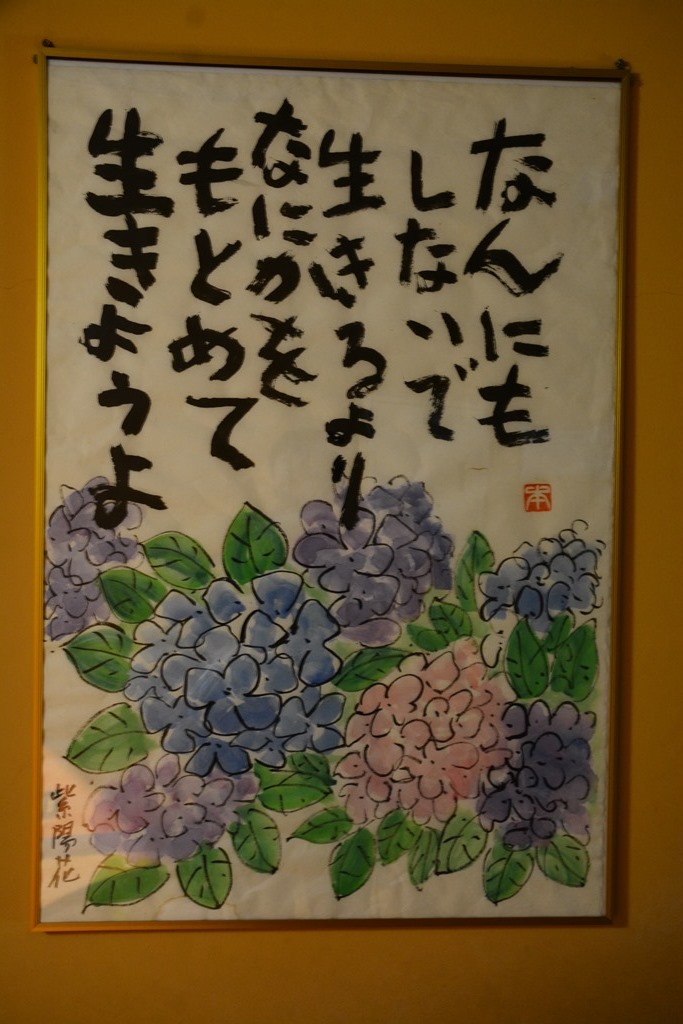 なんにも
しないで
生きるより
なにかを
もとめて
生きようよ
本
紫陽花